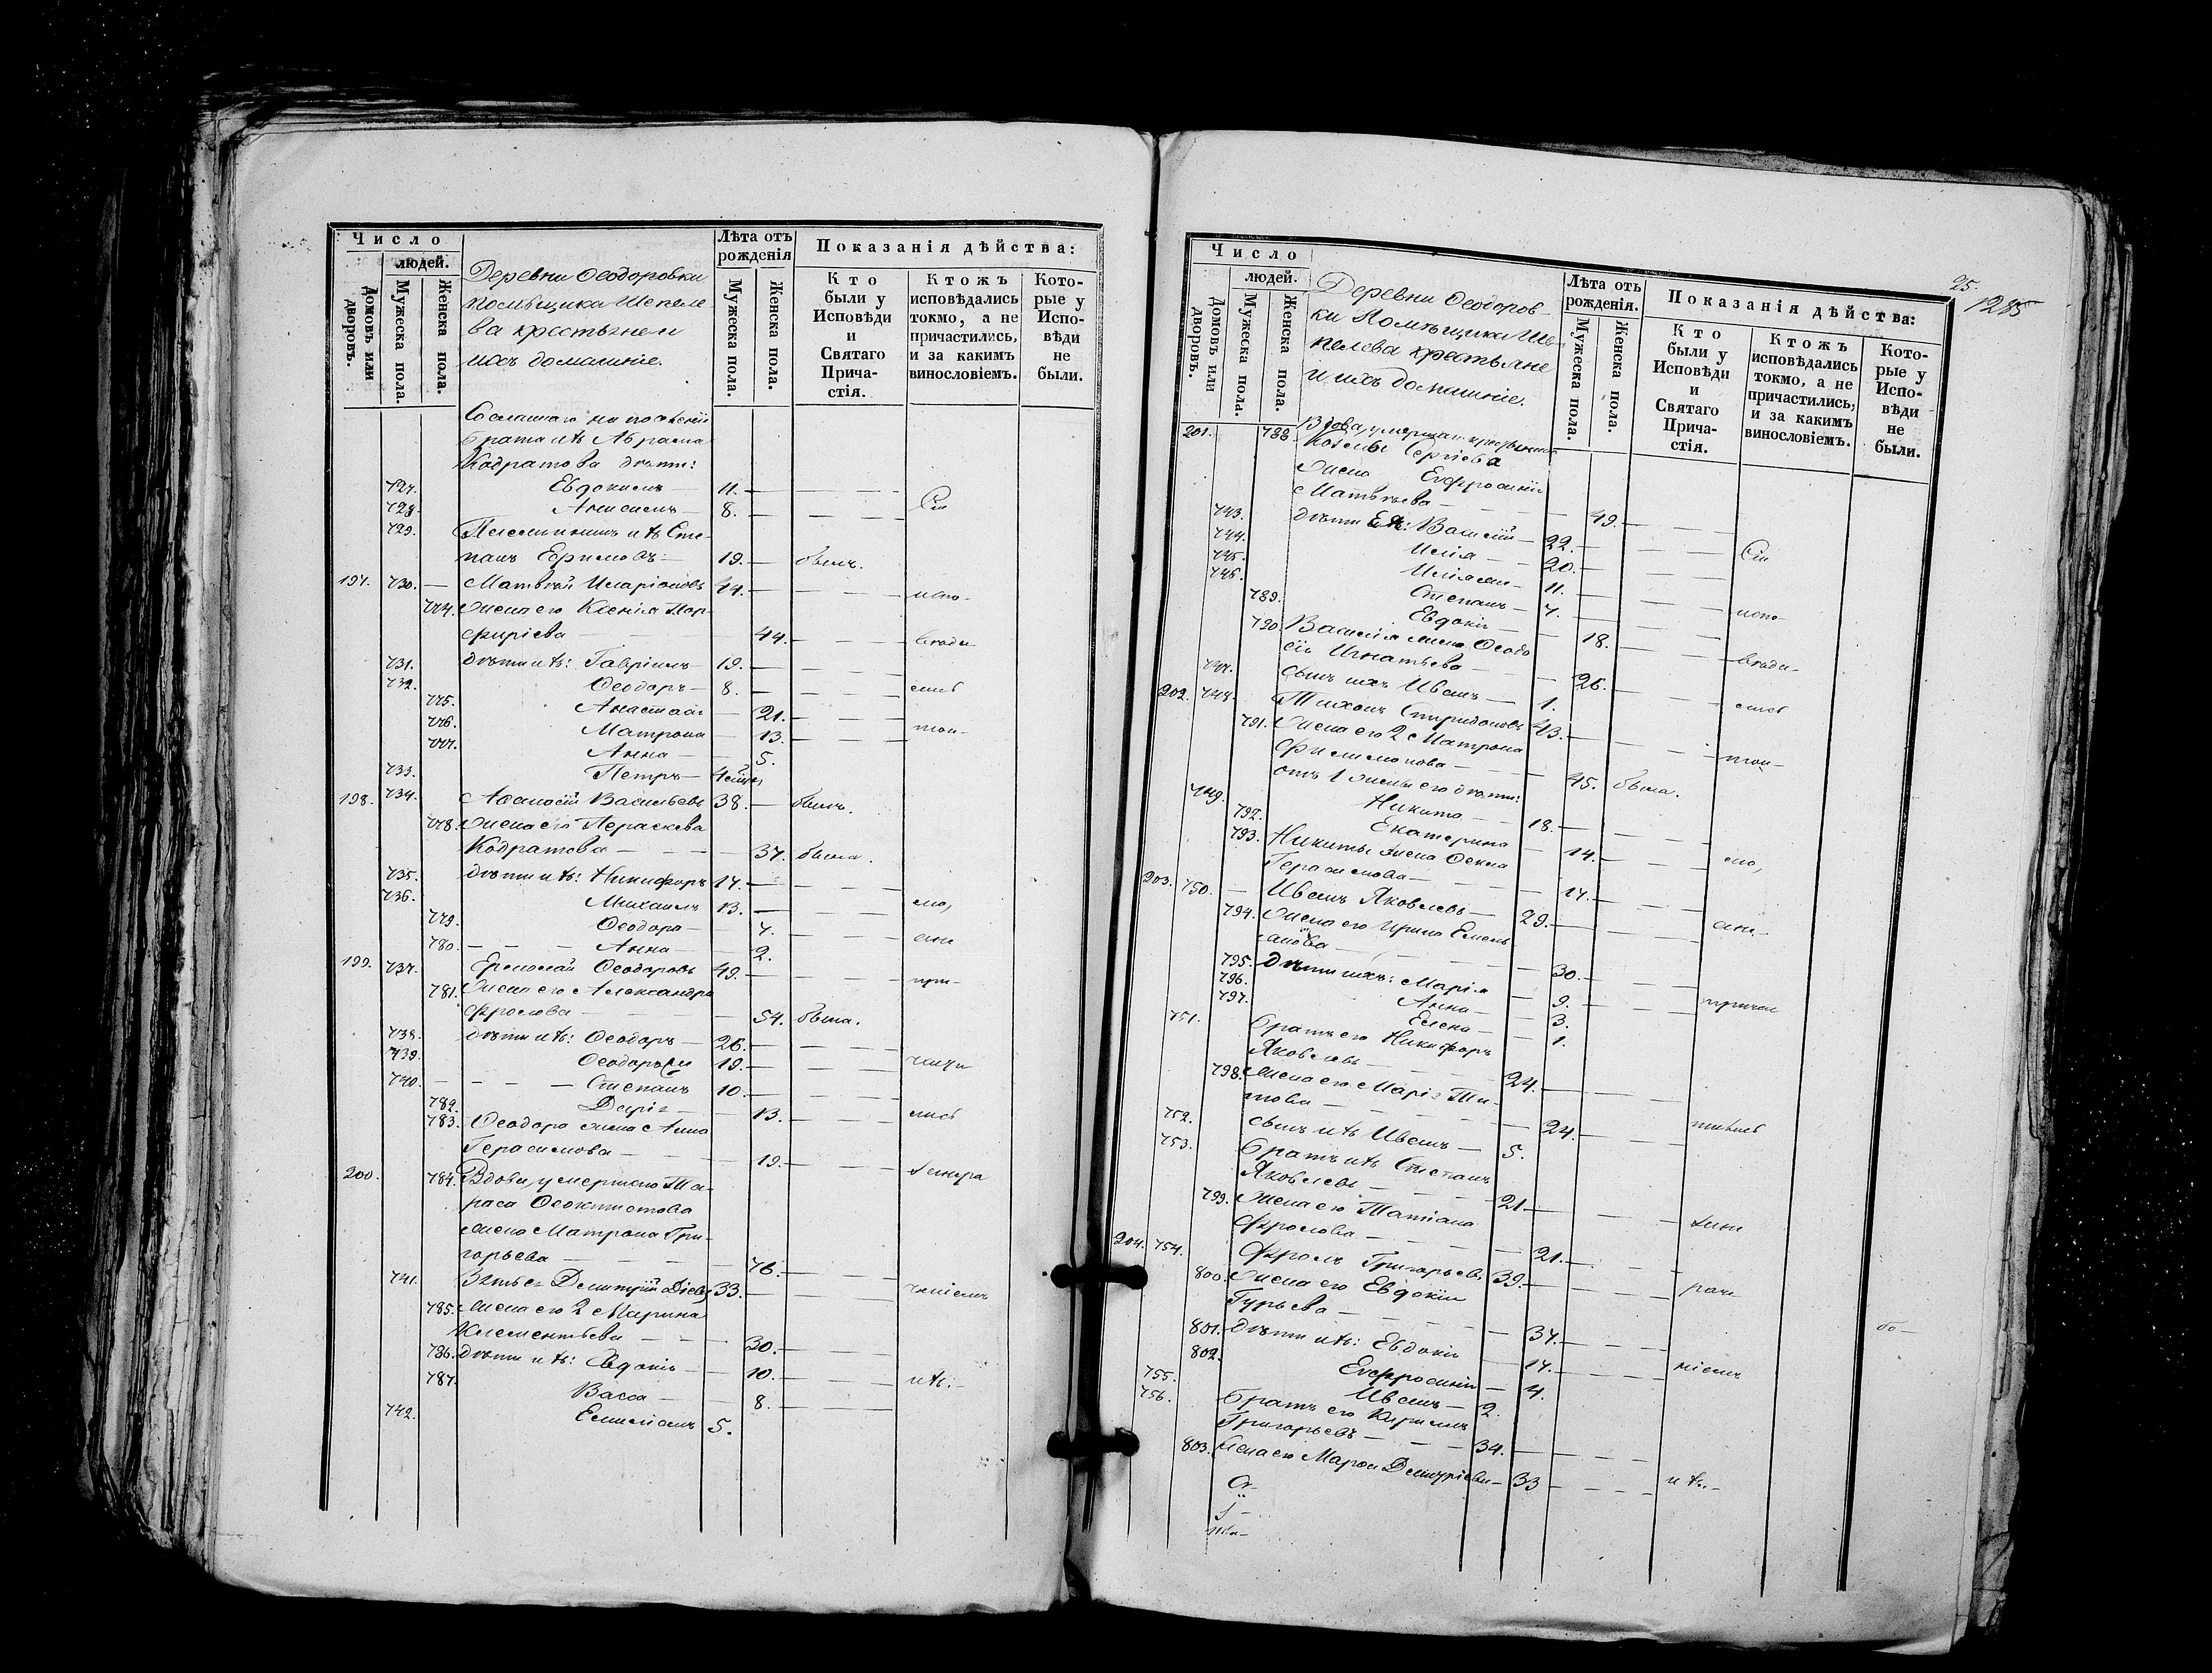 Число
людей.
Домовъ или дворовъ.
Мужеска пола.
Женска пола.
Деревни Ѳеодоровки
помѣщика Шепеле-
ва крестьяне и
ихъ домашніе.
Лѣта отъ рожденія
Мужеска пола.
Женска пола.
Показанія дѣйства:
Кто были у Исповѣди и Святаго Прича-стія.
Ктожъ исповѣдались токмо, а не причастились, и за какимъ винословіемъ.
Кото-рые у Испо-вѣди не были.
Сосланнаго на поселеніе
брата ихъ Абрама
Кодратова дѣти:
727. Евдокимъ 11.
728. Анисимъ 8. Сіи
729. Племянникъ ихъ Сте-
панъ Ефимовъ 19. былъ.
197. 730. Матвѣй Иларіоновъ 44. испо-
774. Жена его Ксенія Пор-
фиріева 44. вѣда-
731. дѣти ихъ: Гавріилъ 19.
732. Ѳеодоръ 8. лись
775. Анастасія 21.
776. Матрона 13. ток-
777. Анна 5.
733. Петръ
198. 734. Аѳанасій Васильевъ 38. былъ.
778. Жена его Параскева
Кодратова 37. была.
735. дѣти ихъ: Никифоръ 17.
736. Михаилъ 13. мо,
779. Ѳеодора 7.
780. Анна 2. а не
199. 737. Ермолай Ѳеодоровъ 49. при-
781. Жена его Александра
Фролова 54. была.
738. дѣти ихъ: Ѳеодоръ 26.
739. Ѳеодоръ 19. части
740. Степанъ 10.
782. Дарія 13. лись
783. Ѳеодора жена Анна
Герасимова 19.
200. 784. Вдова, умершаго Та-
раса Ѳеоктистова
жена Матрона Гри-
горьева 76.
741. Зять ея Димитрій 33.
785. Жена его 2 Марина
Клементьева 30.
786. дѣти ихъ: Евдокія 10. ихъ.
787. Васса 8.
742. Емиліанъ 5.
25.
1285
Число
людей.
Домовъ или дворовъ.
Мужеска пола.
Женска пола.
Деревни Ѳеодоров-
ки Помѣщика Ше-
пелева крестьяне
и ихъ домашніе.
Лѣта отъ рожденія.
Мужеска пола.
Женска пола.
Показанія дѣйства:
Кто были у Исповѣди и Святаго Прича-стія.
Ктожъ исповѣдались токмо, а не причастились, и за какимъ винословіемъ.
Кото-рые у Испо-вѣди не были.
201. 788. Вдова, умершаго крестьянина
Козьмы Сергіева
жена Евфросинія
Матвѣева 49.
743. дѣти Ея: Василій 22. Сіи
744. Илія 20.
745. 11.
746. Степанъ 7. испо-
789. Евдокія 18.
790. Василія жена Ѳеодо
сія Игнатьева 26. вѣда-
747. сынъ ихъ Иванъ 1.
202. 748. Тихонъ Спиридоновъ 43. лись
791. Жена его 2 Матрона
Филимонова 45. была. ток-
отъ 1 жены его дѣти:
749. Никита 18.
792. Екатерина 14. мо,
793. Никиты жена Ѳекла
Герасимова 17.
203. 750. Иванъ Яковлевъ 29. а не
794. Жена его Ирина Емель
янова 30.
795. дѣти ихъ: Марія 9. причас
796. Анна 3.
797. Елена 1.
751. братъ его Никифоръ
Яковлевъ 24.
798. Жена его Марія Ти-
това 24. тились
752. сынъ ихъ Иванъ 5.
753. братъ ихъ Степанъ
Яковлевъ 21.
799. Жена его Татіана
Фролова 21.
204. 754. Фролъ Григорьевъ 39.
800. Жена его Евдокія
Гурьева 37.
801. дѣти ихъ: Евдокія 17. ніемъ
802. Евфросинія 4.
755. Иванъ 2.
756. братъ его Кириллъ
Григорьевъ 34.
803. Жена его Марѳа Димитріева 33 ихъ.